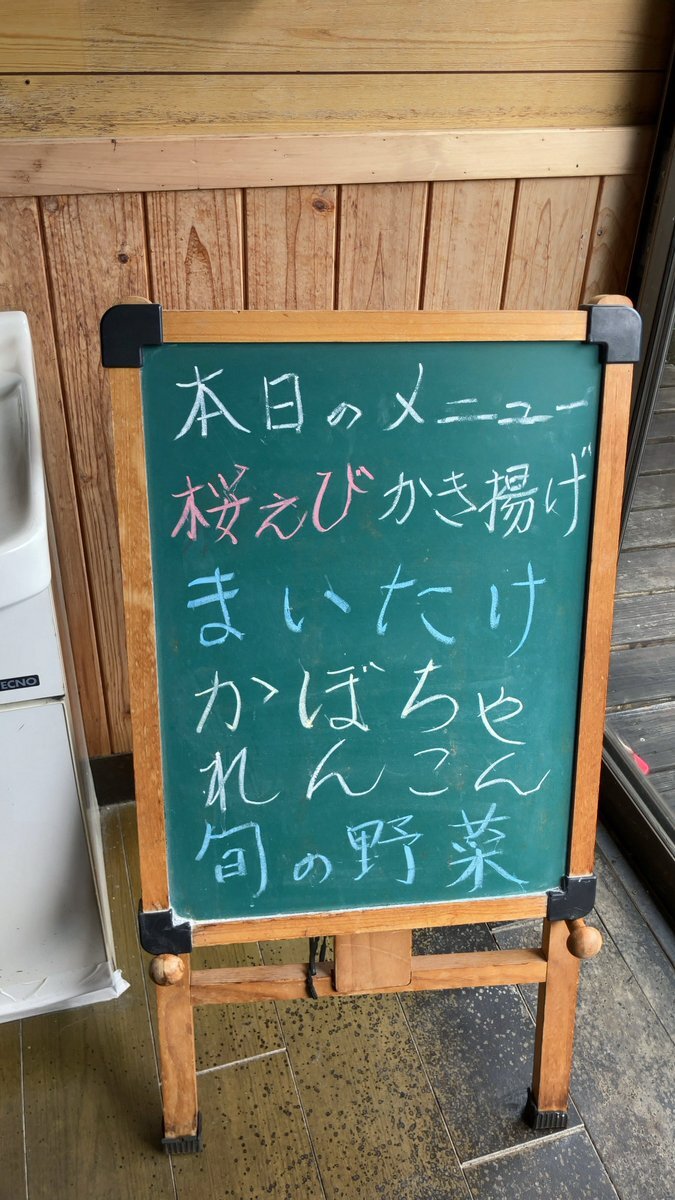 本日のメニュー
桜えびかき揚げ
まいたけ
かぼちゃ
れんこん
旬の野菜
ECNO